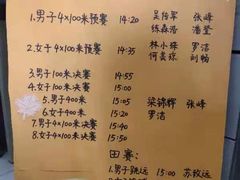 1.男子4×100米预赛 14:20 吴怡军 张峰
练森浩 潘莹
2.女子4×100米预赛 14:35 林小妹 罗洁
何 刘畅
3.男子100米决赛 14:55
4.女子100米决赛 15:00
5.男子400米 15:05 梁锦辉 张峰
6.女子400米 15:20 罗洁
7.男子4×100米决赛 15:40
8.女子4×100米决赛 15:50
田赛:
1.男子跳远 15:00 苏救远